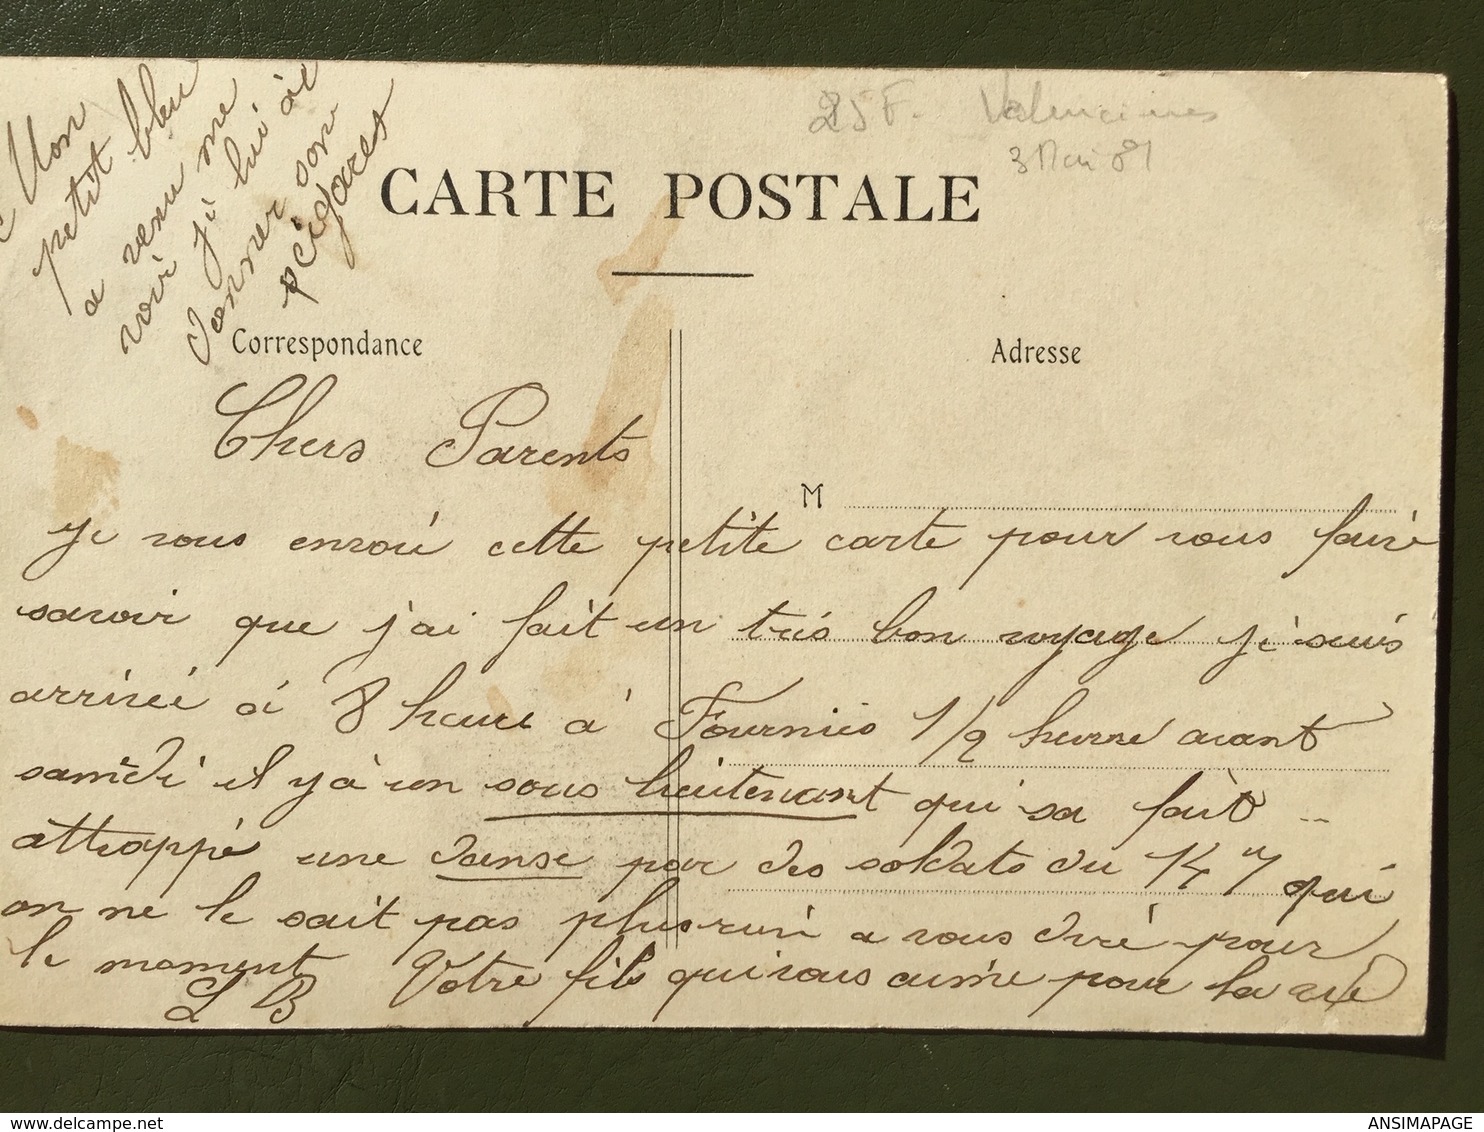 Mon
petit bleu
a venu me
voir j'é lui ai
donner son
pcigares
25 F. Valenciennes
3 Mai 81
CARTE POSTALE
Correspondance
Adresse
Chers Parents
M
Je vous envoié cette petite carte pour vous faire
savoir que j'ai fait un très bon voyage je suis
arriveé á 8 heure à Fourmies 1/2 heurre avant
samedi il y à un sous lieutenant qui sa fait
attrappé une danse par des soldats du 147 qui
on ne le sait pas plus rien a vous diré pour
le moment Votre fils qui vous aime pour la vie
L B
ANSIMAPAGE